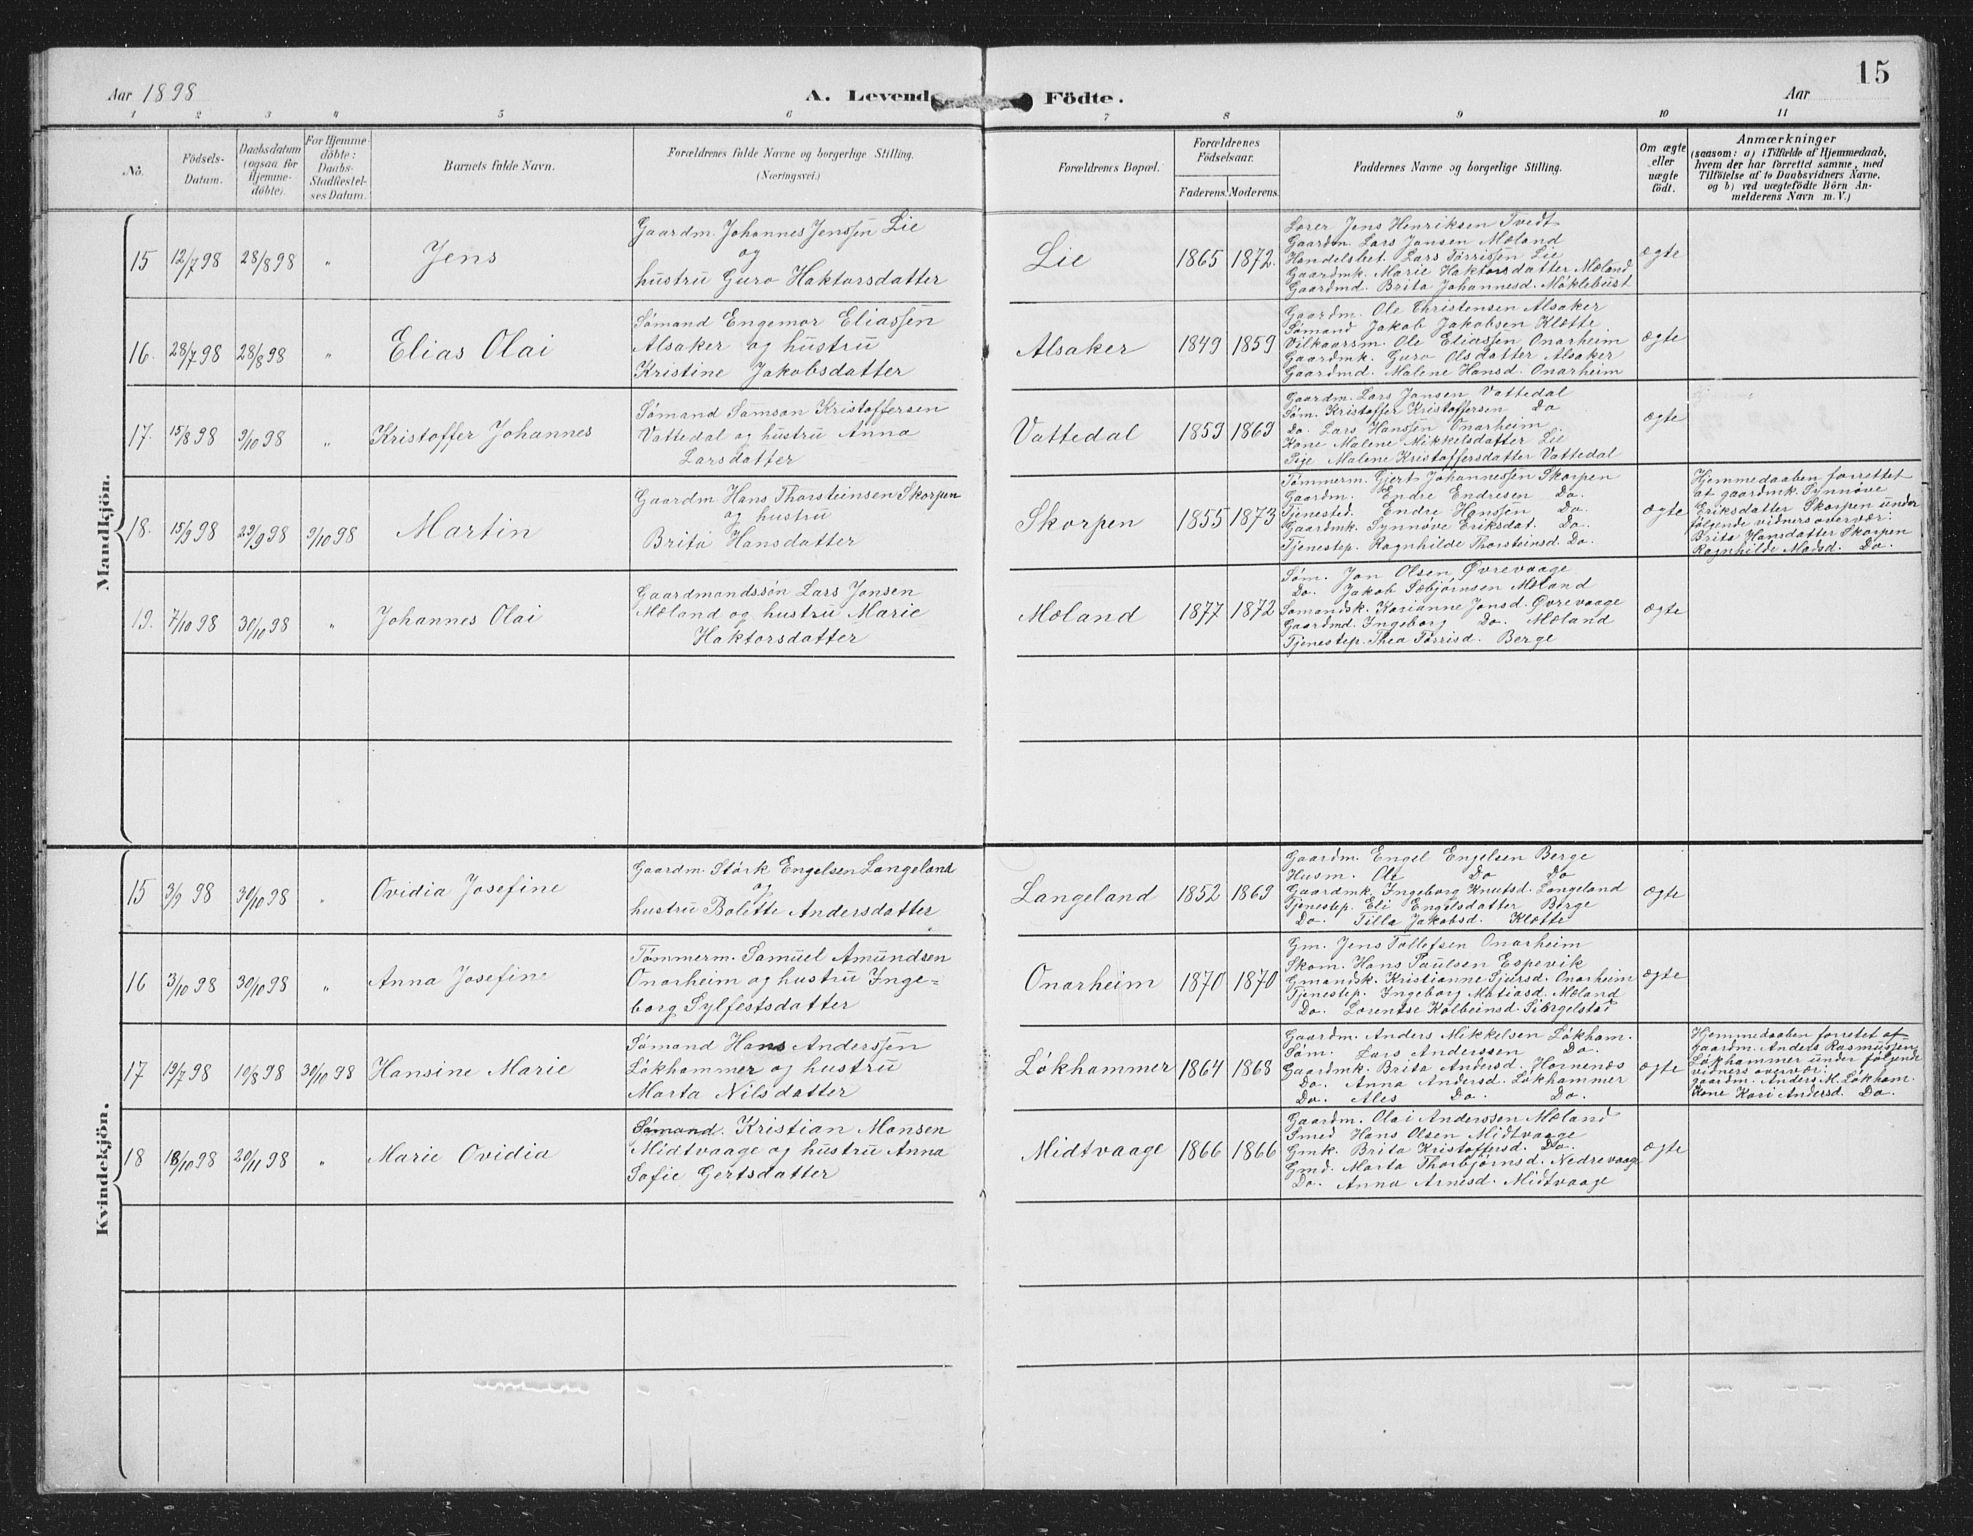 15
Aar 1898
A. Levende Födte.
Aar
1 2 3 4 5 6 7 8 9 10 11
No.
Födsels-Datum.
Daabsdatum (ogsaa for Hjemme-døbte).
For Hjemme-døbte: Daabs-Stadfæstel-ses Datum.
Barnets fulde Navn.
Forældrenes fulde Navne og borgerlige Stilling. (Næringsvei.)
Forældrenes Bopæl.
Forældrenes Födselsaar.
Faderens. Moderens.
Faddernes Navne og borgerlige Stilling.
Om ægte eller uægte født.
Anmærkninger
(saasom: a) i Tilfælde af Hjemmedaab,
hvem der har forrettet samme, med
Tilföielse af to Daabsvidners Navne.
og b) ved uægtefödte Börn An-
melderens Navn m.V.)
Mandkjön.
15 12/7 98 28/8 98 " Jens
Gaardm. Johannes Jenssen Lie
og
hustru Guro Haktorsdatter
Lie 1865 1872.
Lærer Jens Henriksen Tvedt
Gaardm. Lars Jansen Mæland
Handelsbet. Lars Tørrissen Lie
Gaardmk. Marie Haktorsdatter Mæland
Gaardmd. Brita Johannesd. Møklebust
ægte
16. 28/7 98 28/8 98 " Elias Olai
Sømand Engemor Eliassen
Alsaker og hustru
Kristine Jakobsdatter
Alsaker 1849 1859
Gaardm. Ole Christensen Alsaker
Sømand Jakob Jakobsen Klætte
Vilkaarsm. Ole Eliassen Onarheim
Gaardmk. Guro Olsdatter Alsaker
Gaardmd. Malene Hansd. Onarheim
ægte
17. 15/8 98 9/10 98 " Kristoffer Johannes
Sømand Samson Kristoffersen
Vattedal og hustru Anna
Larsdatter
Vattedal 1859 1869
Gaardm. Lars Jansen Vattedal
Søm. Kristoffer Kristoffersen Do
Do. Lars Hanssen Onarheim
Kone Malene Mikkelsdatter Lie
Pige Malene Kristoffersdatter Vattedal
ægte
18. 15/9 98 29/9 98 9/10 98 Martin
Gaardm. Hans Thorsteinsen Skorpen
og hustru
Brita Hansdatter
Skorpen 1855 1873
Tømmerm. Gjert Johannessen Skorpen
Gaardm. Endre Endresen Do.
Tjenested. Endre Hanssen Do.
Gaardmk. Synnøve Eriksdat. Do.
Tjenestep. Ragnhilde Thorsteinsd. Do.
ægte
Hjemmedaaben forrettet
af gaardmk. Synnøve
Eriksdatter Skorpen under
følgende vidners overvær:
Brita Hansdatter Skorpen
Ragnhilde Madsd. Do.
19. 7/10 98 30/10 98 " Johannes Olai
Gaardmandssøn Lars Jonsen
Mæland og hustru Marie
Haktorsdatter
Mæland 1877 1872
Søm. Jon Olsen Øvrevaage
Do. Jakob Sæbjørnsen Mæland
Sømandsk. Karianne Jonsd. Øvrevaage
Gaardmd. Ingeborg Do. Mæland
Tjenestep. Thea Tørrisd. Berge
ægte
Kvindekjön.
15 3/9 98 30/10 98 " Ovidia Josefine
Gaardm. Størk Engelsen Langeland
og
hustru Bolette Andersdatter
Langeland 1852 1869
Gaardm. Engel Engelsen Berge
Husm. Ole Do Do
Gaardmk. Ingeborg Knutsd. Langeland
Tjenestep. Eli Engelsdatter Berge
Do. Tilla Jakobsd. Klætte
ægte
16 3/10 98 30/10 98 " Anna Josefine
Tømmerm. Samuel Amundsen
Onarheim og hustru Inge=
borg Sylfestsdatter
Onarheim 1870 1870
Gm. Jens Tollefsen Onarheim
Skom. Hans Paulsen Espevik
Gmandsk. Kristianne Sjursd. Onarheim
Tjenestep. Ingeborg Matiasd. Mæland
Do. Lorentse Kolbeinsd.
ægte
17 19/7 98 10/8 98 30/10 98 Hansine Marie
Sømand Hans Anderssen
Løkhammer og hustru
Marta Nilsdatter
Løkhammer 1864 1868
Gaardm. Anders Mikkelsen Løkham.
Søm. Lars Anderssen Do.
Gaardmk. Brita Andersd. Hornenæs
Do. Anna Andersd. Løkhammer
Do. Ales Do. Do.
ægte
Hjemmedaaben forretet af
Gaardm. Anders Rasmussen
Løkhammer under følgende
vidners overvær:
gaardm. Anders M. Løkham.
Kone Kari Andersd. Do.
18 18/10 98 20/11 98 " Marie Ovidia
Sømand. Kristian Monsen
Midtvaage og hustru Anna
Sofie Gertsdatter
Midtvaage 1866 1866
Gaardm. Olai Anderssen Mæland
Smed Hans Olsen Midtvaage
Gmk. Brita Kristoffersd. Do.
Gmd. Marta Thorbjørnsd. Nedrevaage
Do. Anna Arnesd. Midtvaage
ægte